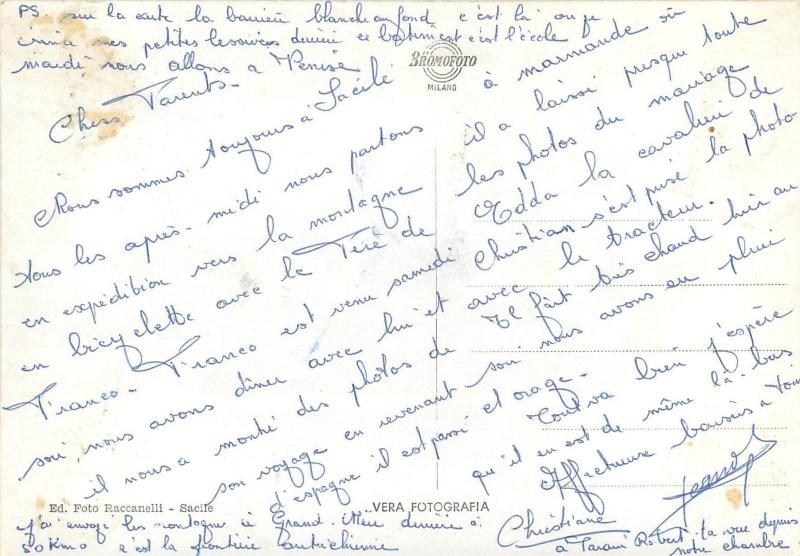 PS sur la carte la barrière blanche au fond c'est là où je
mes petites lessives derrière ce bâtiment c'est l'école
mardi nous allons à Venise
BROMOFOTO
MILANO
Chers Parents-
Nous sommes toujours à Sacile
tous les après-midi nous partons
en expédition vers la montagne
en bicyclette avec le Père de
Franco - Franco est venu samedi
soir, nous avons dîner avec lui et
il nous a montré des photos de
son voyage en revenant
d'Espagne il est passé
à marmande où
il a laissé presque toute
les photos du mariage
Edda la cavalière de
Christian s'est prise la photo
avec le tracteur.
Il fait très chaud hier au
soir nous avons eu pluie
et orage -
Tout va bien j'espère
qu'il en est de même là-bas
Affectueux baisers à tous
Christiane
Ed. Foto Raccanelli - Sacile
VERA FOTOGRAFIA
J'ai envoyé les montagnes à Grand-Mère derrière à
50 Kms c'est la frontière autrichienne
à Robert la vue depuis
notre chambre